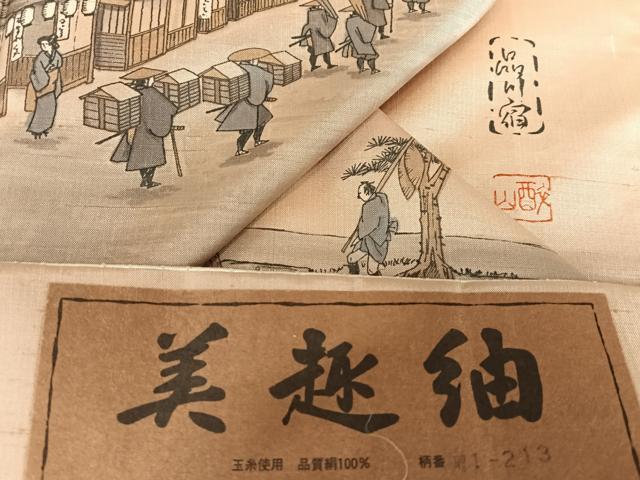 品川宿
美趣紬
玉糸使用 品質絹100% 柄番 1-213